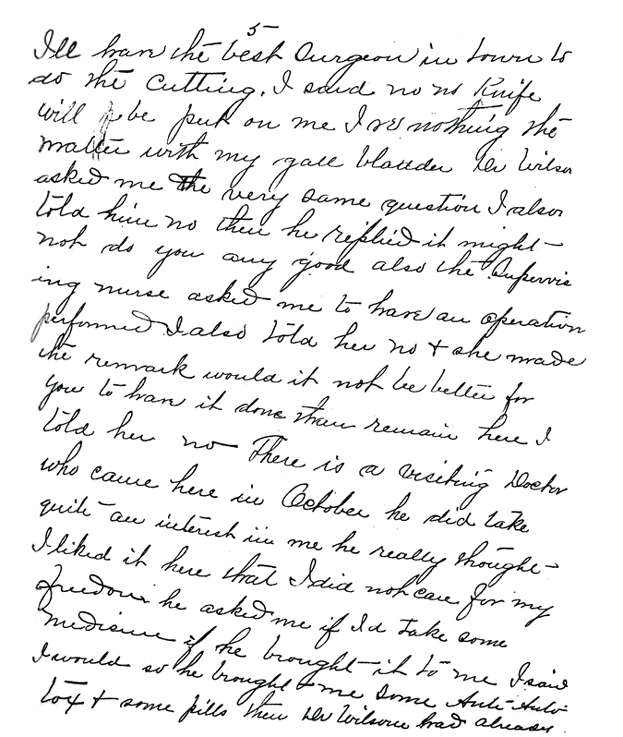 5-
I'll have the best Surgeon in town to
do the cutting, I said no no Knife
will be put on me I nothing the
matter with my gall bladder Dr Wilson
asked me the very same question I also
told him no then he replied it might
not do you any good also the Supervis
ing nurse asked me to have an operation
performed I also told her no + she made
the remark would it not be better for
you to have it done than remain here I
told her no There is a visiting Doctor
who came here in October he did take
quite an interest in me he really thought
I liked it here that I did not care for my
freedom he asked me if I'd take some
medisine if he brought it to me I said
I would so he brought me some Anti-Auto-
tox + some pills then Dr Wilson had already